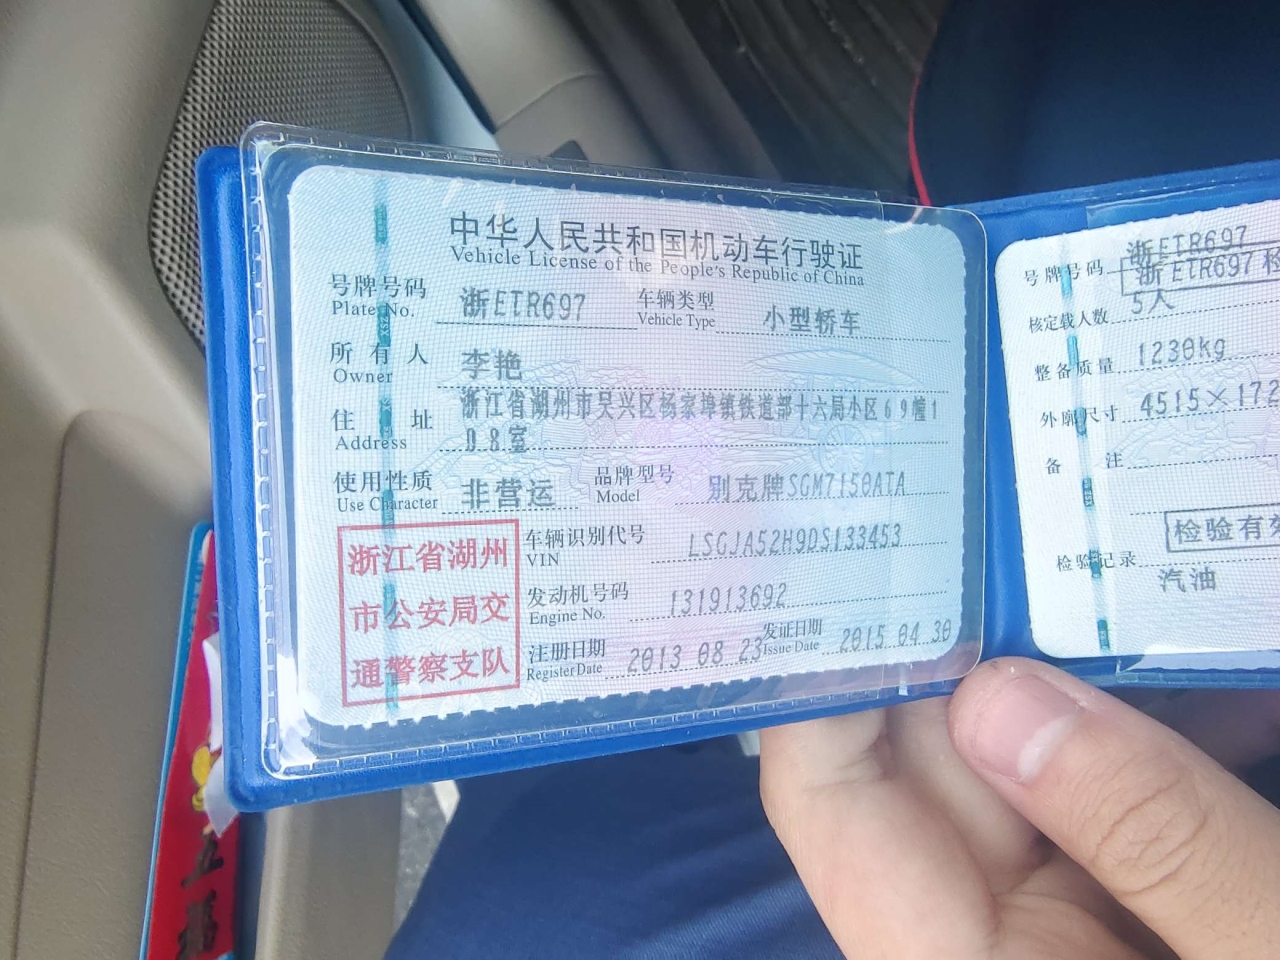 中华人民共和国机动车行驶证
Vehicle License of the People's Republic of China
号牌号码 浙ETR697 车辆类型 小型轿车
Plate No. Vehicle Type
所有人 李艳
Owner
住址 浙江省湖州市吴兴区杨家埠镇铁道部十六局小区69幢1
Address 08室
使用性质 非营运 品牌型号 别克牌SGM7150ATA
Use Character Model
浙江省湖州
市公安局交
通警察支队
车辆识别代号 LSGJA52H9DS133453
VIN
发动机号码 131913692
Engine No.
注册日期 2013 08 23 发证日期 2015 04 30
Register Date Issue Date
号牌号码 浙ETR697
浙ETR697 检
核定载人数 5人
整备质量 1230kg
外廓尺寸 4515×172
备注
检验有效
检验记录
汽油
五福